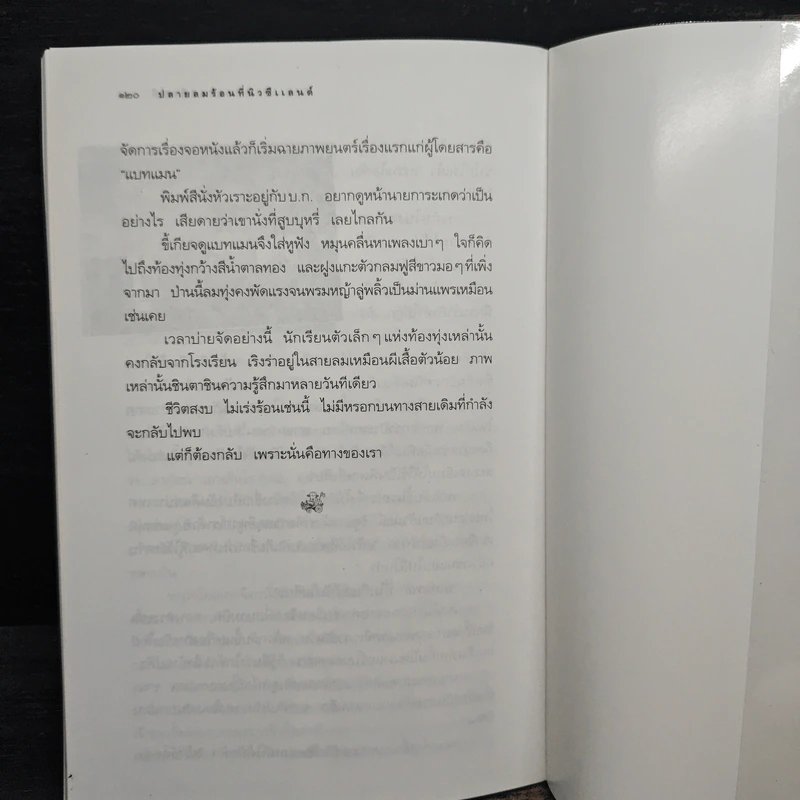 ๑๒๐ ปลายลมร้อนที่นิวซีแลนด์
จัดการเรื่องจอหนังแล้วก็เริ่มฉายภาพยนตร์เรื่องแรกแก่ผู้โดยสารคือ
"แบทแมน"
พิมพ์สีนั่งหัวเราะอยู่กับ บ.ก. อยากดูหน้านายการะเกดว่าเป็น
อย่างไร เสียดายว่าเขานั่งที่สูบบุหรี่ เลยไกลกัน
ขี้เกียจดูแบทแมนจึงใส่หูฟัง หมุนคลื่นหาเพลงเบาๆ ใจก็คิด
ไปถึงท้องทุ่งกว้างสีน้ำตาลทอง และฝูงแกะตัวกลมฟูสีขาวมอๆ ที่เพิ่ง
จากมา ป่านนี้ลมทุ่งคงพัดแรงจนพรมหญ้าลู่พลิ้วเป็นม่านแพรเหมือน
เช่นเคย
เวลาบ่ายจัดอย่างนี้ นักเรียนตัวเล็กๆ แห่งท้องทุ่งเหล่านั้น
คงกลับจากโรงเรียน เริงร่าอยู่ในสายลมเหมือนผีเสื้อตัวน้อย ภาพ
เหล่านั้นชินตาชินความรู้สึกมาหลายวันทีเดียว
ชีวิตสงบ ไม่เร่งร้อนเช่นนี้ ไม่มีหรอกบนทางสายเดิมที่กำลัง
จะกลับไปพบ
แต่ก็ต้องกลับ เพราะนั่นคือทางของเรา